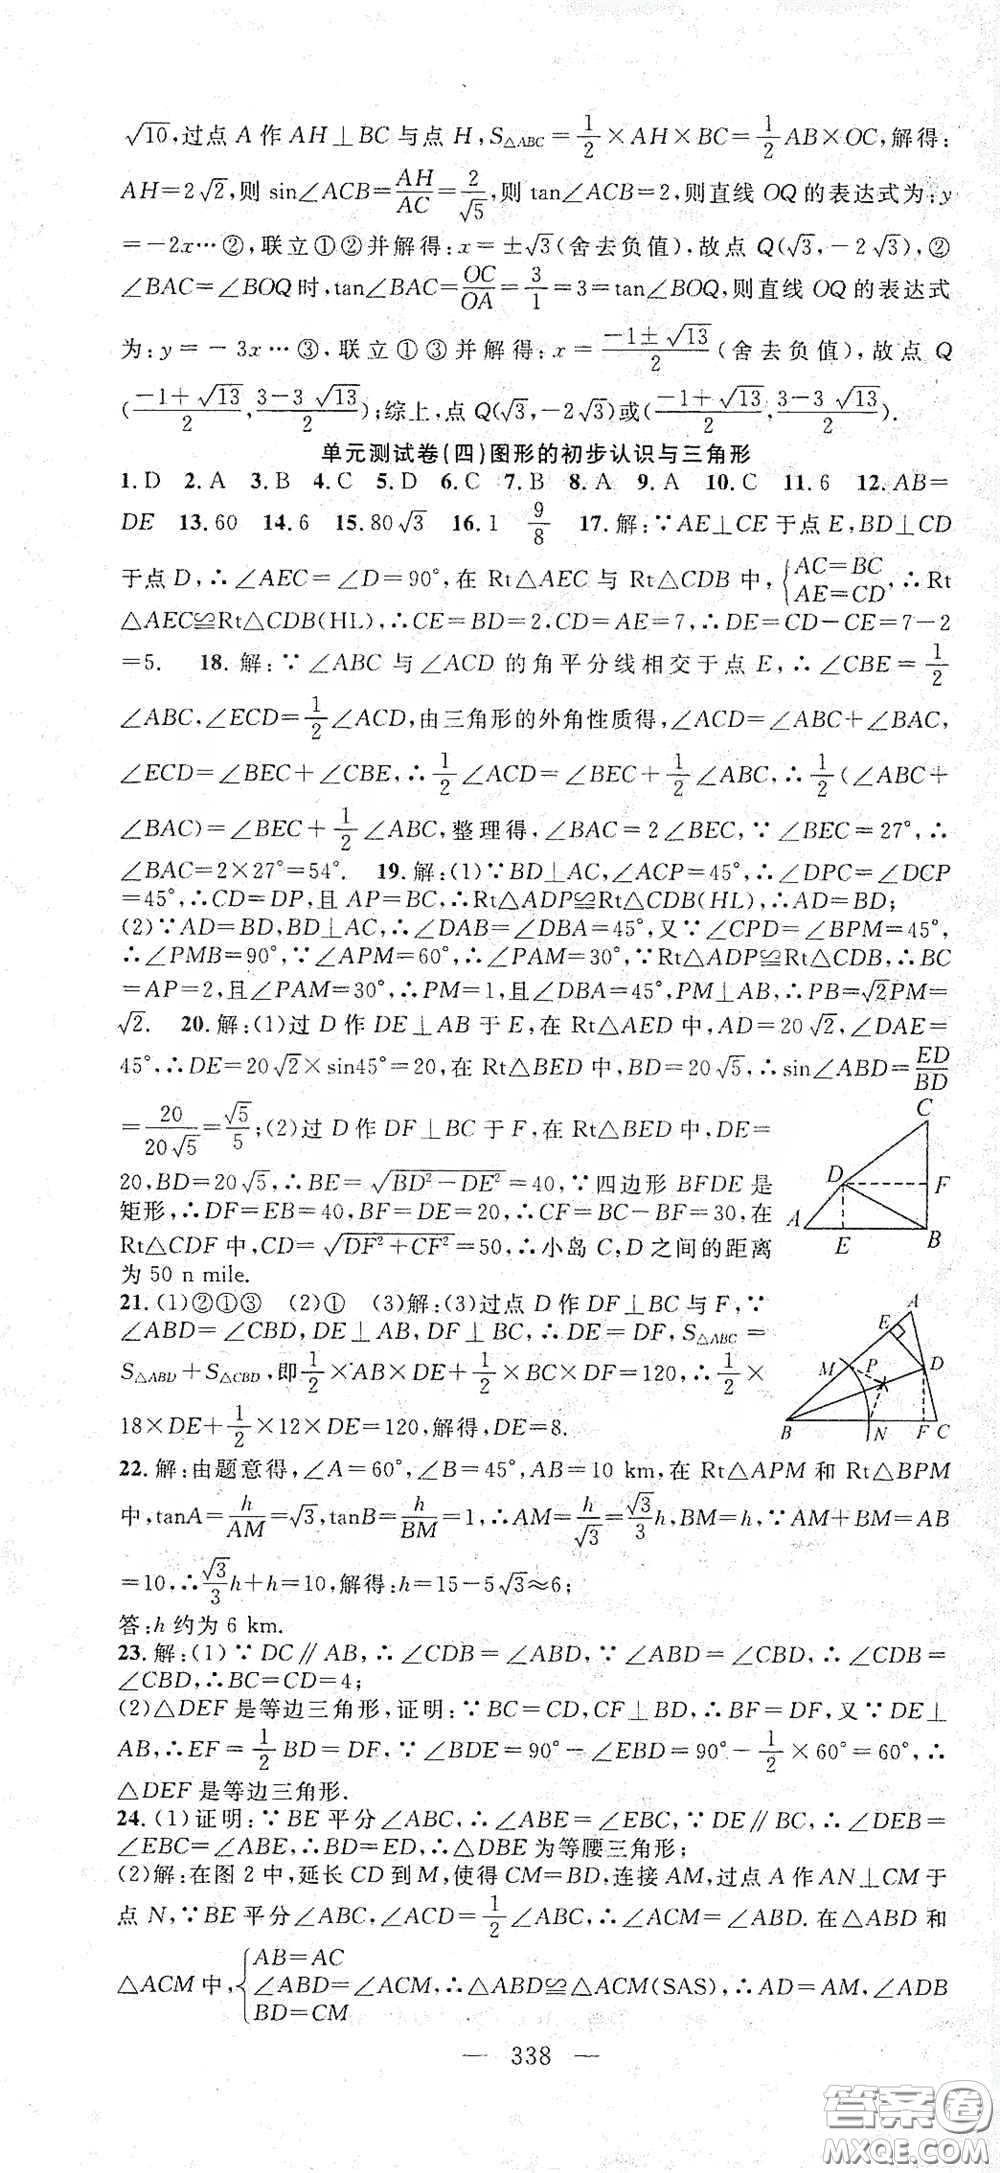 √10,过点 A 作 AH⊥BC 与点 H,S△ABC=1/2×AH×BC=1/2AB×OC,解得:
AH=2√2,则 sin∠ACB=AH/AC=2/√5,则 tan∠ACB=2,则直线 OQ 的表达式为:y
=-2x…②,联立①②并解得:x=±√3(舍去负值),故点 Q(√3,-2√3),②
∠BAC=∠BOQ 时,tan∠BAC=OC/OA=3/1=3=tan∠BOQ,则直线 OQ 的表达式
为:y=-3x…③,联立①③并解得:x=(-1±√13)/2(舍去负值),故点 Q
((-1+√13)/2,(3-3√13)/2);综上,点 Q(√3,-2√3)或((-1+√13)/2,(3-3√13)/2).
单元测试卷(四)图形的初步认识与三角形
1.D 2.A 3.B 4.C 5.D 6.C 7.B 8.A 9.A 10.C 11.6 12.AB=
DE 13.60 14.6 15.80√3 16.1 9/8 17.解:∵AE⊥CE 于点 E,BD⊥CD
于点 D,∴∠AEC=∠D=90°,在 Rt△AEC 与 Rt△CDB 中,{AC=BC AE=CD,∴Rt
△AEC≌Rt△CDB(HL),∴CE=BD=2.CD=AE=7,∴DE=CD-CE=7-2
=5. 18.解:∵∠ABC 与∠ACD 的角平分线相交于点 E,∴∠CBE=1/2
∠ABC,∠ECD=1/2∠ACD,由三角形的外角性质得,∠ACD=∠ABC+∠BAC,
∠ECD=∠BEC+∠CBE,∴1/2∠ACD=∠BEC+1/2∠ABC,∴1/2(∠ABC+
∠BAC)=∠BEC+1/2∠ABC,整理得,∠BAC=2∠BEC,∵∠BEC=27°,∴
∠BAC=2×27°=54°. 19.解:(1)∵BD⊥AC,∠ACP=45°,∴∠DPC=∠DCP
=45°,∴CD=DP,且 AP=BC,∴Rt△ADP≌Rt△CDB(HL),∴AD=BD;
(2)∵AD=BD,BD⊥AC,∴∠DAB=∠DBA=45°,又∵∠CPD=∠BPM=45°,
∴∠PMB=90°,∵∠APM=60°,∴∠PAM=30°,∵Rt△ADP≌Rt△CDB,∴BC
=AP=2,且∠PAM=30°,∴PM=1,且∠DBA=45°,PM⊥AB,∴PB=√2PM=
√2. 20.解:(1)过 D 作 DE⊥AB 于 E,在 Rt△AED 中,AD=20√2,∠DAE=
45°,∴DE=20√2×sin45°=20,在 Rt△BED 中,BD=20√5,∴sin∠ABD=ED/BD
=20/20√5=√5/5;(2)过 D 作 DF⊥BC 于 F,在 Rt△BED 中,DE=
20,BD=20√5,∴BE=√(BD²-DE²)=40,∵四边形 BFDE 是
矩形,∴DF=EB=40,BF=DE=20,∴CF=BC-BF=30,在
Rt△CDF 中,CD=√(DF²+CF²)=50,∴小岛 C,D 之间的距离
为 50 n mile.
C
D
F
A
E
B
21.(1)②①③ (2)① (3)解:(3)过点 D 作 DF⊥BC 与 F,∵
∠ABD=∠CBD,DE⊥AB,DF⊥BC,∴DE=DF,S△ABC=
S△ABD+S△CBD,即1/2×AB×DE+1/2×BC×DF=120,∴1/2×
18×DE+1/2×12×DE=120,解得,DE=8.
A
E
M P D
B N F C
22.解:由题意得,∠A=60°,∠B=45°,AB=10 km,在 Rt△APM 和 Rt△BPM
中,tanA=h/AM=√3,tanB=h/BM=1,∴AM=h/√3=√3/3h,BM=h,∵AM+BM=AB
=10,∴√3/3h+h=10,解得:h=15-5√3≈6;
答:h 约为 6 km.
23.解:(1)∵DC∥AB,∴∠CDB=∠ABD,∵∠ABD=∠CBD,∴∠CDB=
∠CBD,∴BC=CD=4;
(2)△DEF 是等边三角形,证明:∵BC=CD,CF⊥BD,∴BF=DF,又∵DE⊥
AB,∴EF=1/2BD=DF,∵∠BDE=90°-∠EBD=90°-1/2×60°=60°,∴
△DEF 是等边三角形.
24.(1)证明:∵BE 平分∠ABC,∴∠ABE=∠EBC,∵DE∥BC,∴∠DEB=
∠EBC=∠ABE,∴BD=ED,∴△DBE 为等腰三角形;
(2)解:在图 2 中,延长 CD 到 M,使得 CM=BD,连接 AM,过点 A 作 AN⊥CM 于
点 N,∵BE 平分∠ABC,∠ACD=1/2∠ABC,∴∠ACM=∠ABD.在△ABD 和
△ACM 中,{AB=AC ∠ABD=∠ACM BD=CM,∴△ABD≌△ACM(SAS),∴AD=AM,∠ADB
— 338 —
答案圈
MXQE.COM